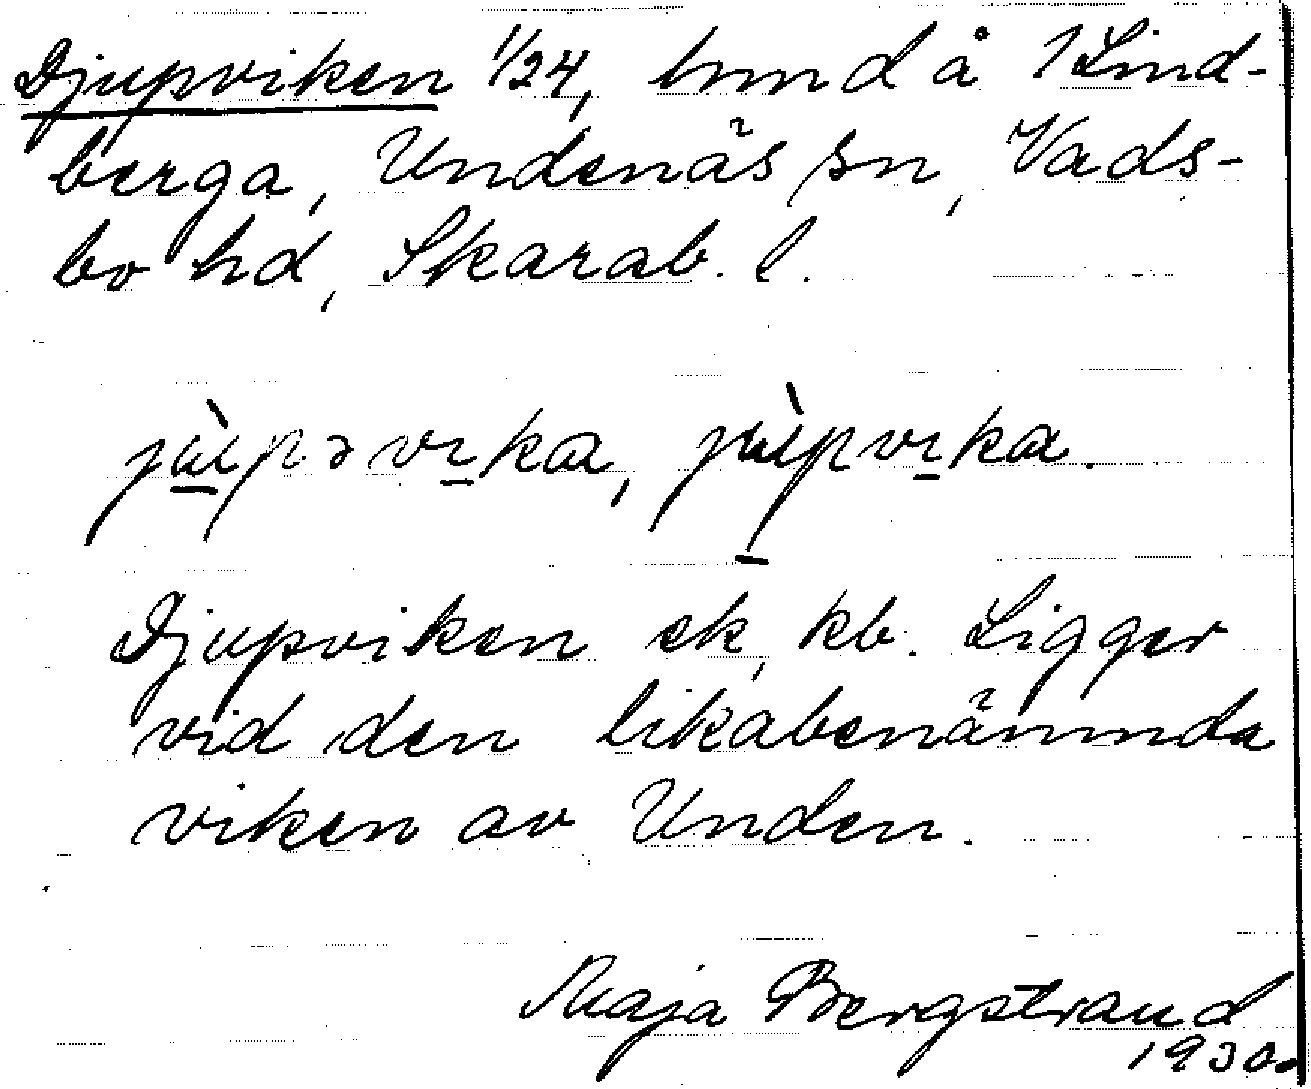 Djupviken 1/24, hmd å 1 Lind-
berga, Undenäs sn, Vads-
bo hd, Skarab. l.
jùpəvika, jùpvika.
Djupviken ek, kb. Ligger
vid den likabenämnda
viken av Unden.
Maja Bergstrand
1930.